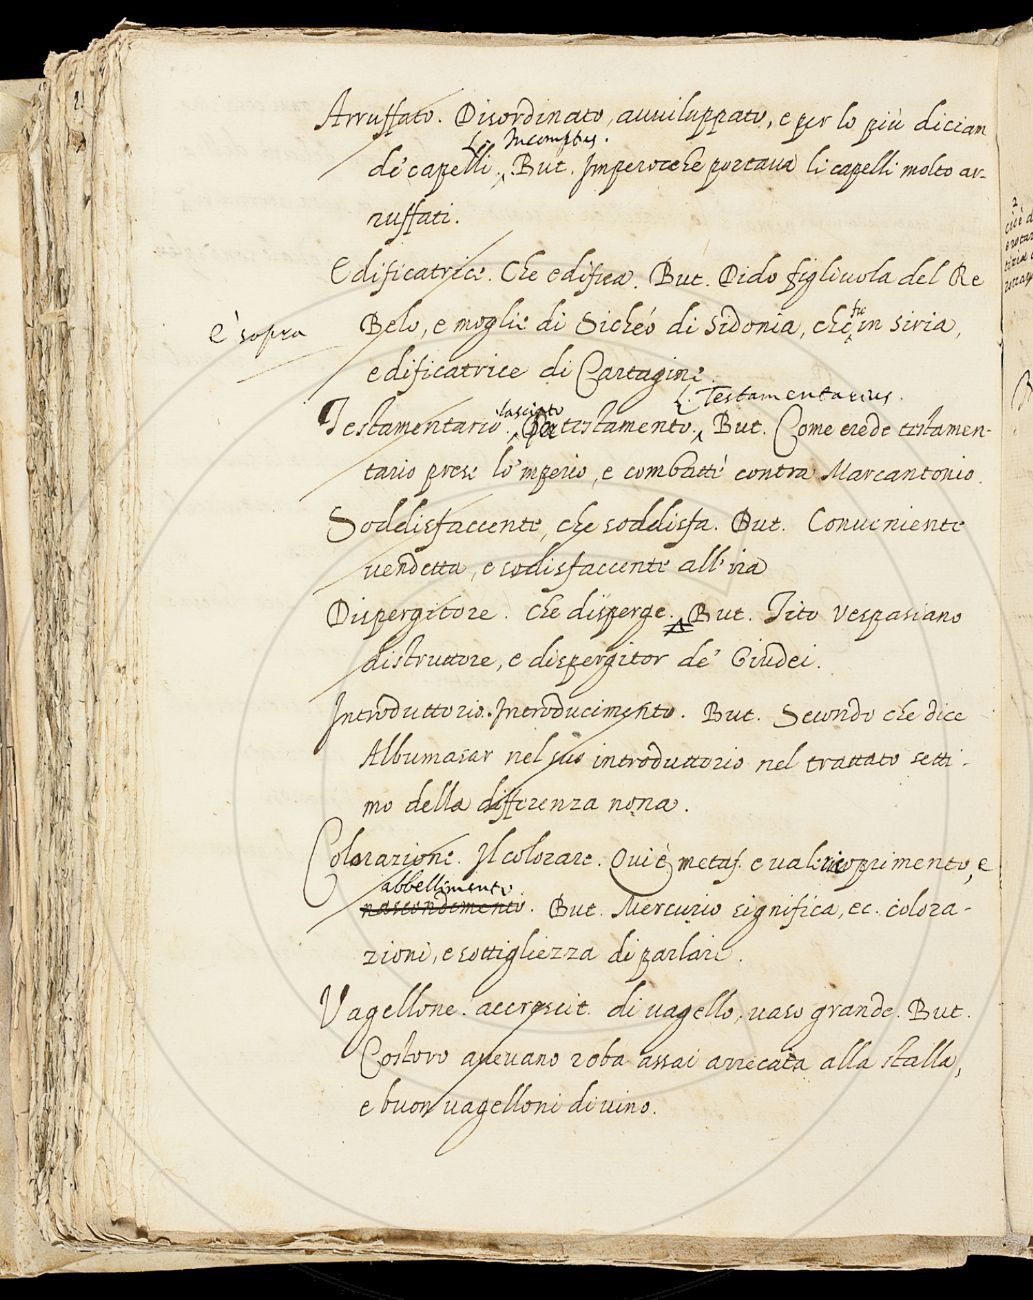 Arruffato. Disordinato, avviluppato, e per lo più dician
L. Incomptus.
de' capelli. But. Imperocche portava li capelli molto ar-
ruffati.
Edificatrice. Che edifica. But. Dido figliuola del Re
È sopra
Belo, e moglie di Sicheo di Sidonia, che fu in Siria,
edificatrice di Cartagine.
lasciato L. Testamentarius.
Testamentario. Per testamento. But. Come erede testamen-
tario prese lo 'mperio, e combatté contra Marcantonio.
Soddisfaccente, che soddisfa. But. Conveniente
vendetta, e sodisfaccente all'ira
Dispergitore. Che disperge. But. Tito Vespasiano
distruttore, e dispergitor de' Giudei.
Introduttorio. Introducimento. But. Secondo che dice
Albumasar nel suo introduttorio nel trattato setti-
mo della differenza nona.
Colorazione. Il colorare. Qui è metaf. e vale ricoprimento, e
abbellimento
nascondimento. But. Mercurio significa, ec. colora-
zioni, e sottigliezza di parlare.
Vagellone. accrescit. di vagello, vaso grande. But.
Costoro avevano roba assai arrecata alla stalla,
e buon vagelloni di vino.